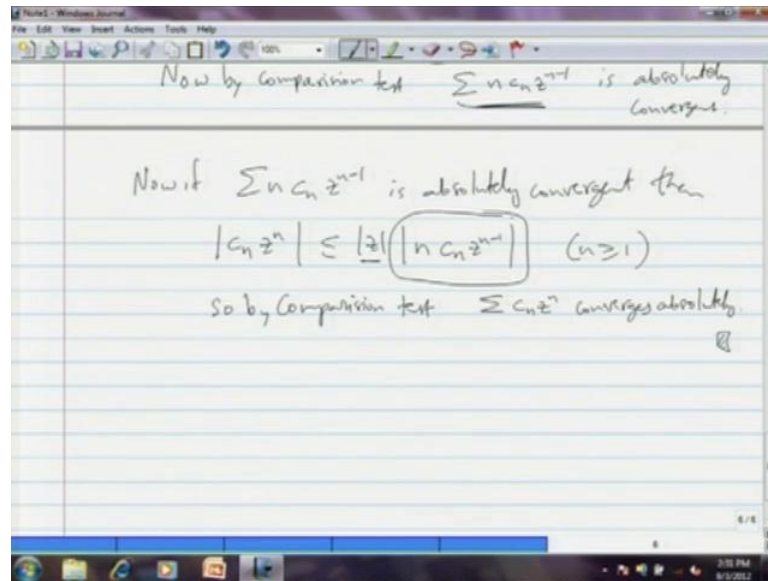 Note1 - Windows Journal
File Edit View Insert Actions Tools Help
100%
Now by Comparision test Σ n cₙ zⁿ⁻¹ is absolutely
Convergent.
Now if Σ n cₙ zⁿ⁻¹ is absolutely convergent then
|cₙ zⁿ| ≤ |z| |n cₙ zⁿ⁻¹| (n ≥ 1)
so by Comparision test Σ cₙ zⁿ converges absolutely.
6/6
6
2:31 PM
8/3/2012